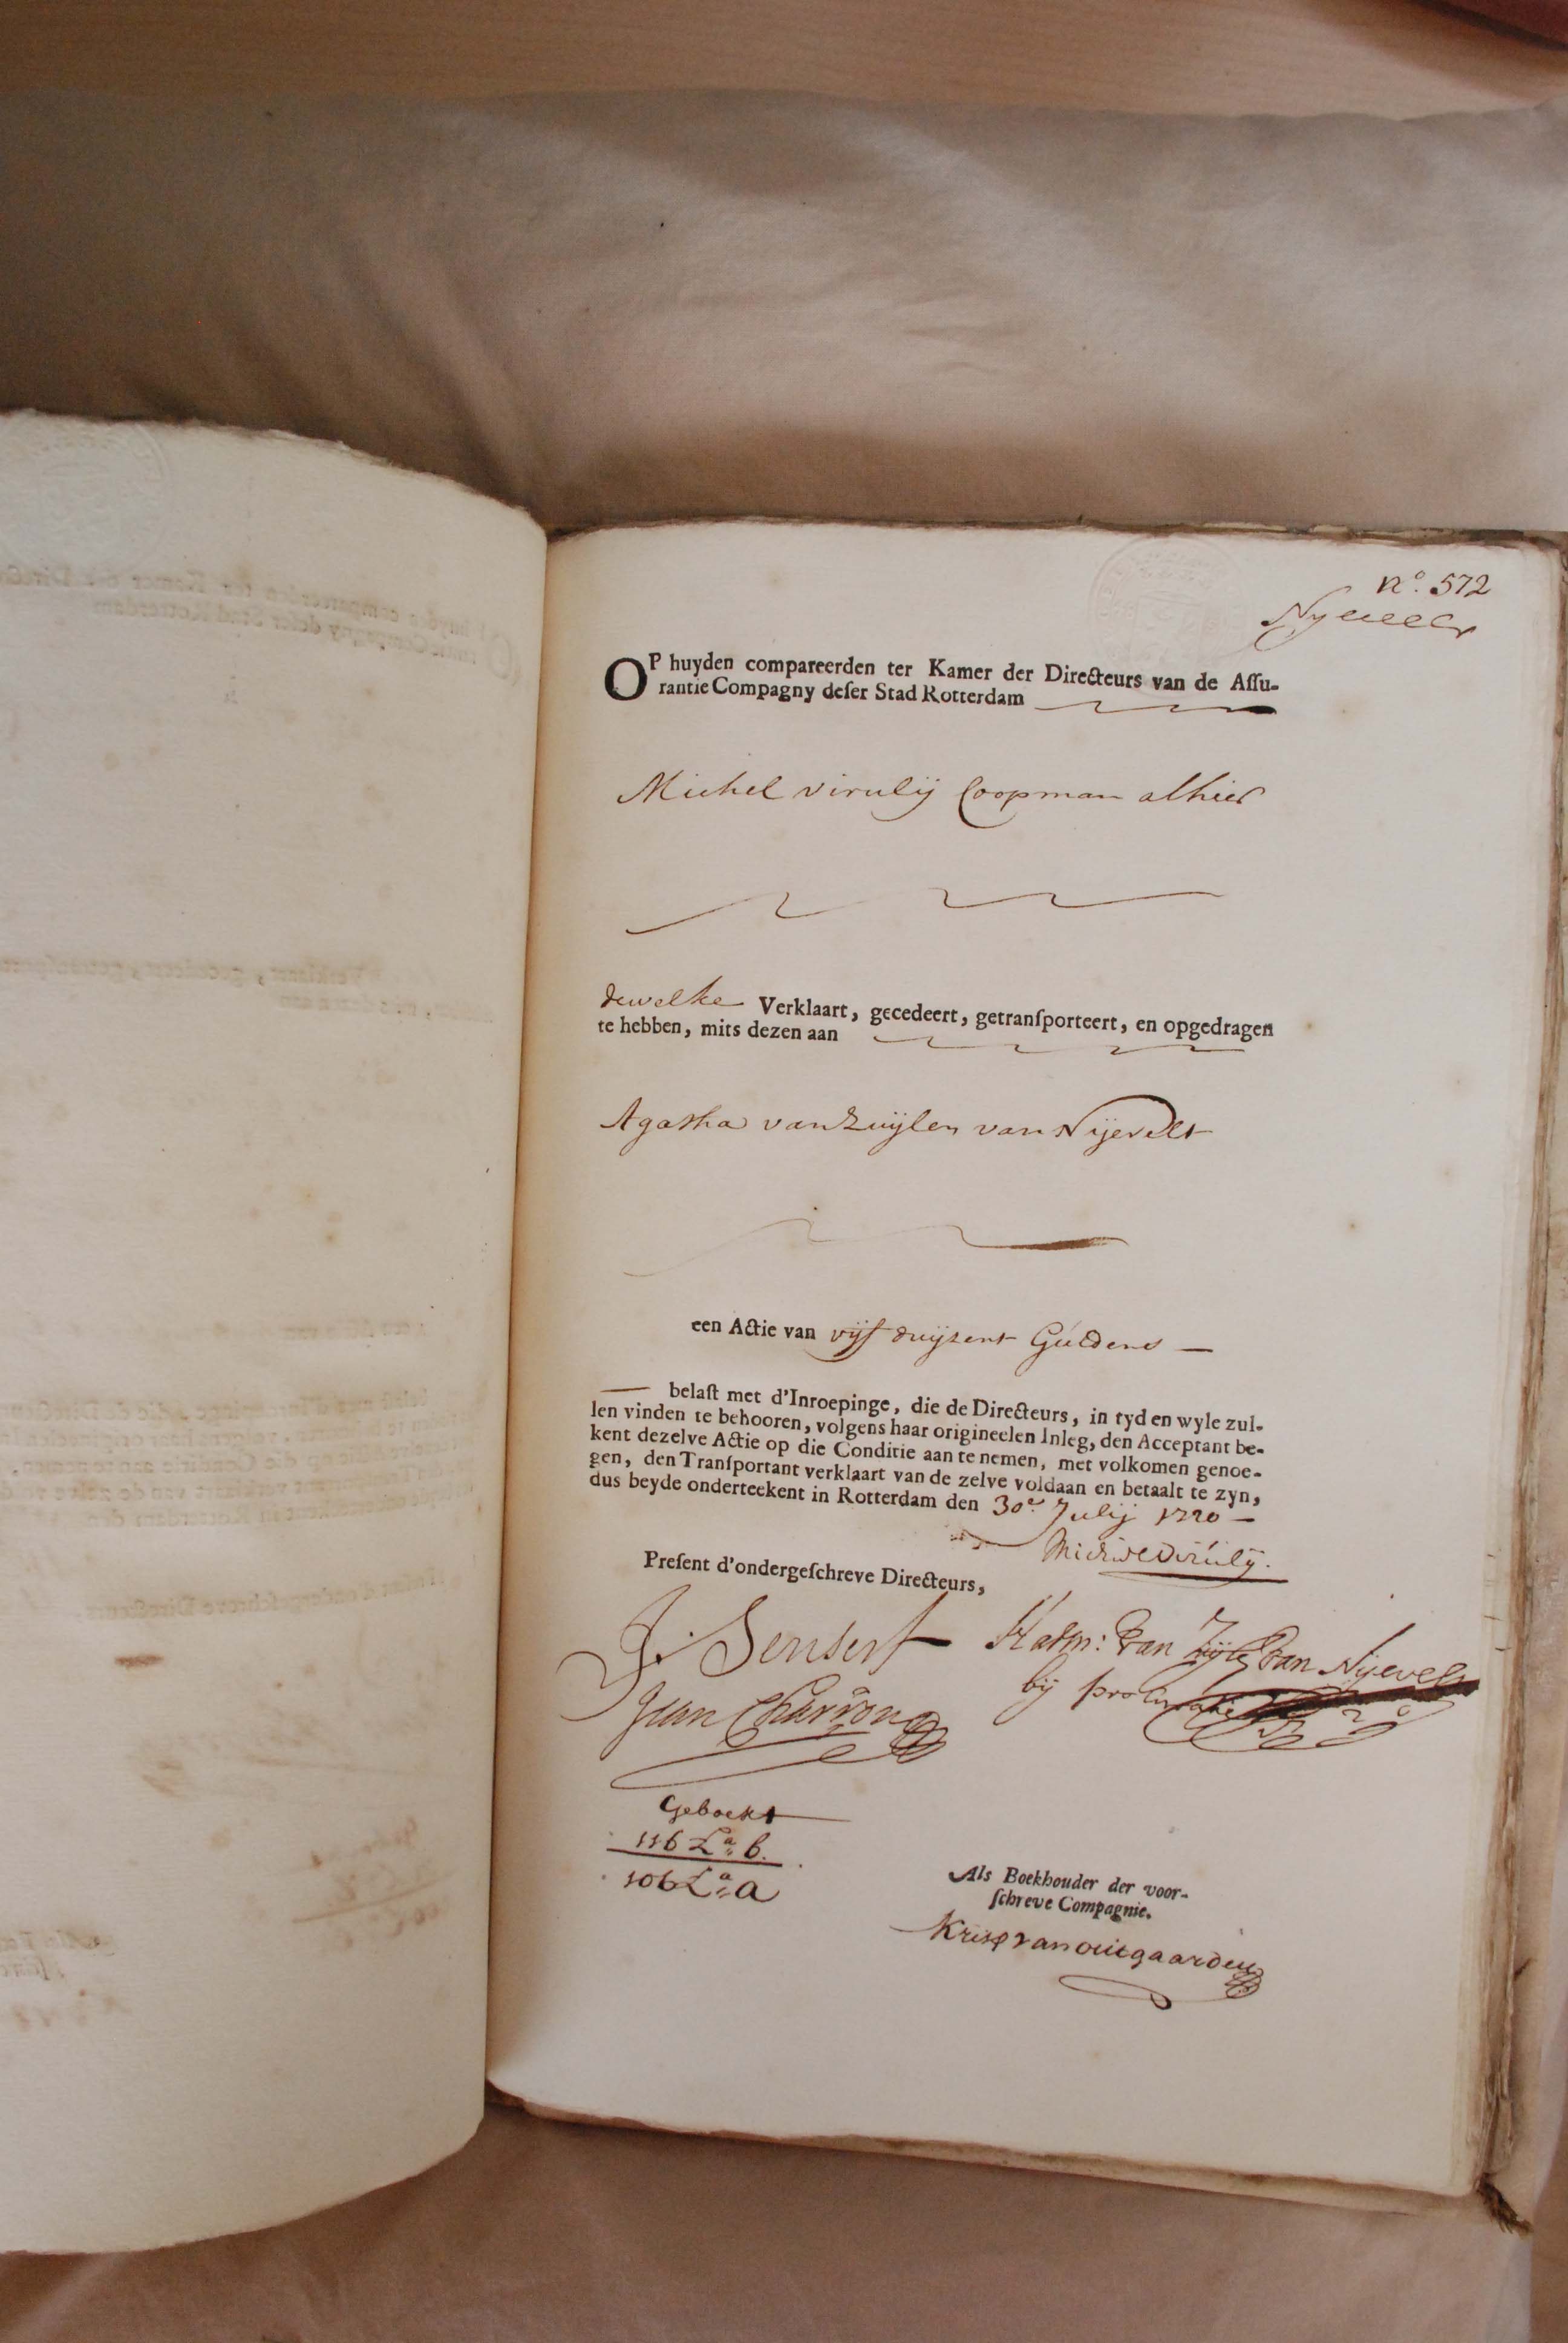 n.º 572
Nyevelt
OP huyden compareerden ter Kamer der Directeurs van de Aſſu-
rantie Compagny deſer Stad Rotterdam
Michel virulÿ Coopman alhier
dewelke Verklaart, gecedeert, getranſporteert, en opgedragen
te hebben, mits dezen aan
Agatha van Zuÿlen van Nÿevelt
een Actie van vÿf duÿzent Guldens —
— belaſt met d'Inroepinge, die de Directeurs, in tyd en wyle zul-
len vinden te behooren, volgens haar origineelen Inleg, den Acceptant be-
kent dezelve Actie op die Conditie aan te nemen, met volkomen genoe-
gen, den Tranſportant verklaart van de zelve voldaan en betaalt te zyn,
dus beyde onderteekent in Rotterdam den 30e Julÿ 1720 —
Michiel Virulÿ.
Preſent d'ondergeſchreve Directeurs,
J. Senserf
van Nÿevelt
bÿ procuratie
Jean Charron
Geboekt
116 La b.
106 La a
Als Boekhouder der voor-
ſchreve Compagnie.
Krisp van outgaarden